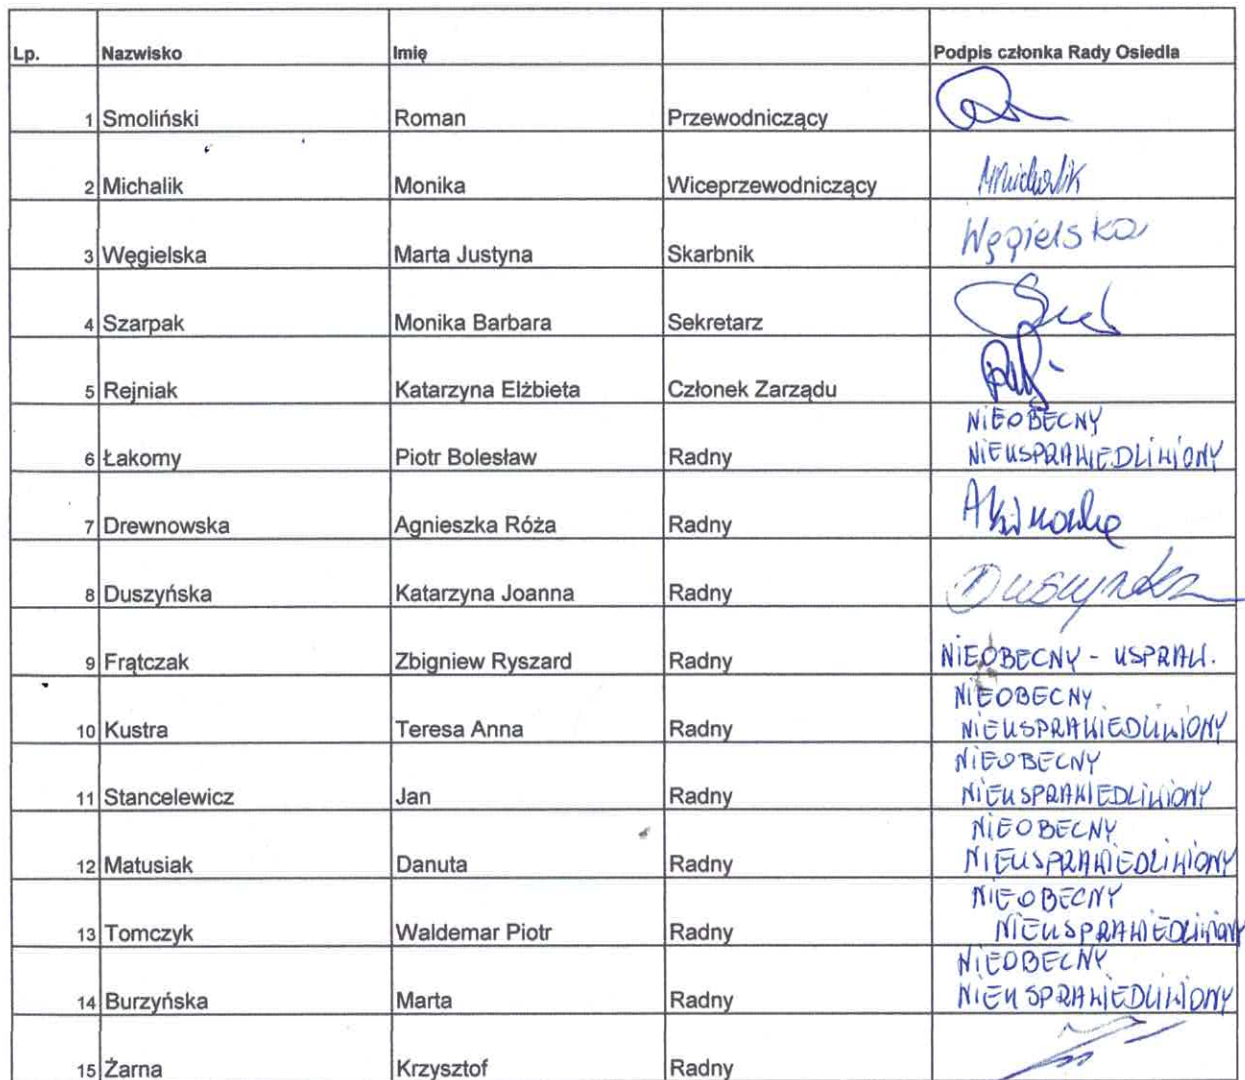 Lp. Nazwisko Imię Podpis członka Rady Osiedla
1 Smoliński Roman Przewodniczący
2 Michalik Monika Wiceprzewodniczący MMichalik
3 Węgielska Marta Justyna Skarbnik Węgielska
4 Szarpak Monika Barbara Sekretarz
5 Rejniak Katarzyna Elżbieta Członek Zarządu
NIEOBECNY
6 Łakomy Piotr Bolesław Radny NIEUSPRAWIEDLIWIONY
7 Drewnowska Agnieszka Róża Radny
8 Duszyńska Katarzyna Joanna Radny Duszyńska
9 Frątczak Zbigniew Ryszard Radny NIEOBECNY - USPRAW.
NIEOBECNY
10 Kustra Teresa Anna Radny NIEUSPRAWIEDLIWIONY
NIEOBECNY
11 Stancelewicz Jan Radny NIEUSPRAWIEDLIWIONY
NIEOBECNY
12 Matusiak Danuta Radny NIEUSPRAWIEDLIWIONY
NIEOBECNY
13 Tomczyk Waldemar Piotr Radny NIEUSPRAWIEDLIWIONY
NIEOBECNY
14 Burzyńska Marta Radny NIEUSPRAWIEDLIWIONY
15 Żarna Krzysztof Radny